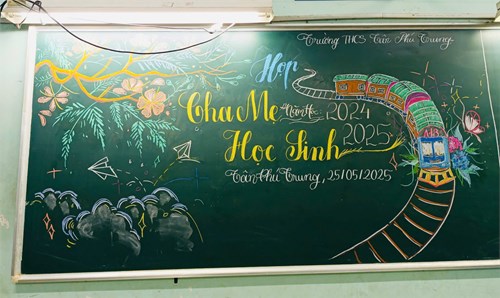 Trường THCS Tân Phú Trung
Họp
Cha Mẹ Năm H 2024
Học Sinh 2025
Tân Phú Trung, 25/05/2025